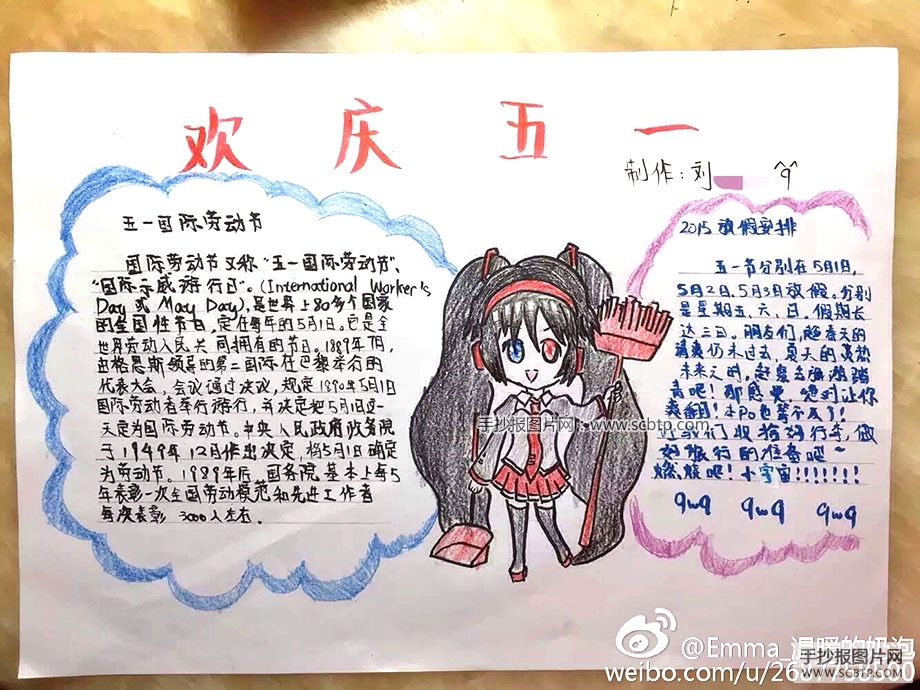 欢庆五一
制作:刘
五一国际劳动节
国际劳动节又称“五一国际劳动节”、
“国际示威游行日”。(International Worker's
Day 或 May Day),是世界上80多个国家
的全国性节日,定在每年的5月1日。它是全
世界劳动人民共同拥有的节日。1889年7月,
由恩格斯领导的第二国际在巴黎举行的
代表大会,会议通过决议,规定1890年5月1日
国际劳动者举行游行,并决定把5月1日这一
天定为国际劳动节。中央人民政府政务院
于1949年12月作出决定,将5月1日确定
为劳动节。1989年后,国务院基本上每5
年表彰一次全国劳动模范和先进工作者
每次表彰3000人左右.
2015放假安排
五一节分别在5月1日,
5月2日、5月3日放假。分别
是星期五、六、日。假期长
达三日。朋友们,趁春天的
清爽仍未过去,夏天的炎热
未来之时,赶紧去游游踏
青吧!那感觉,绝对让你
爽翻!本Po也等不及了!
让我们收拾好行李,做
好旅行的准备吧~
燃烧吧!小宇宙!!!!!!!
qwq qwq qwq
手抄报图片网:www.scbtp.com
@Emma_温暖的奶泡
手抄报图片网
WWW.SCBTP.COM